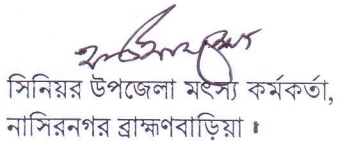 সিনিয়র উপজেলা মৎস্য কর্মকর্তা,
নাসিরনগর ব্রাহ্মণবাড়িয়া।